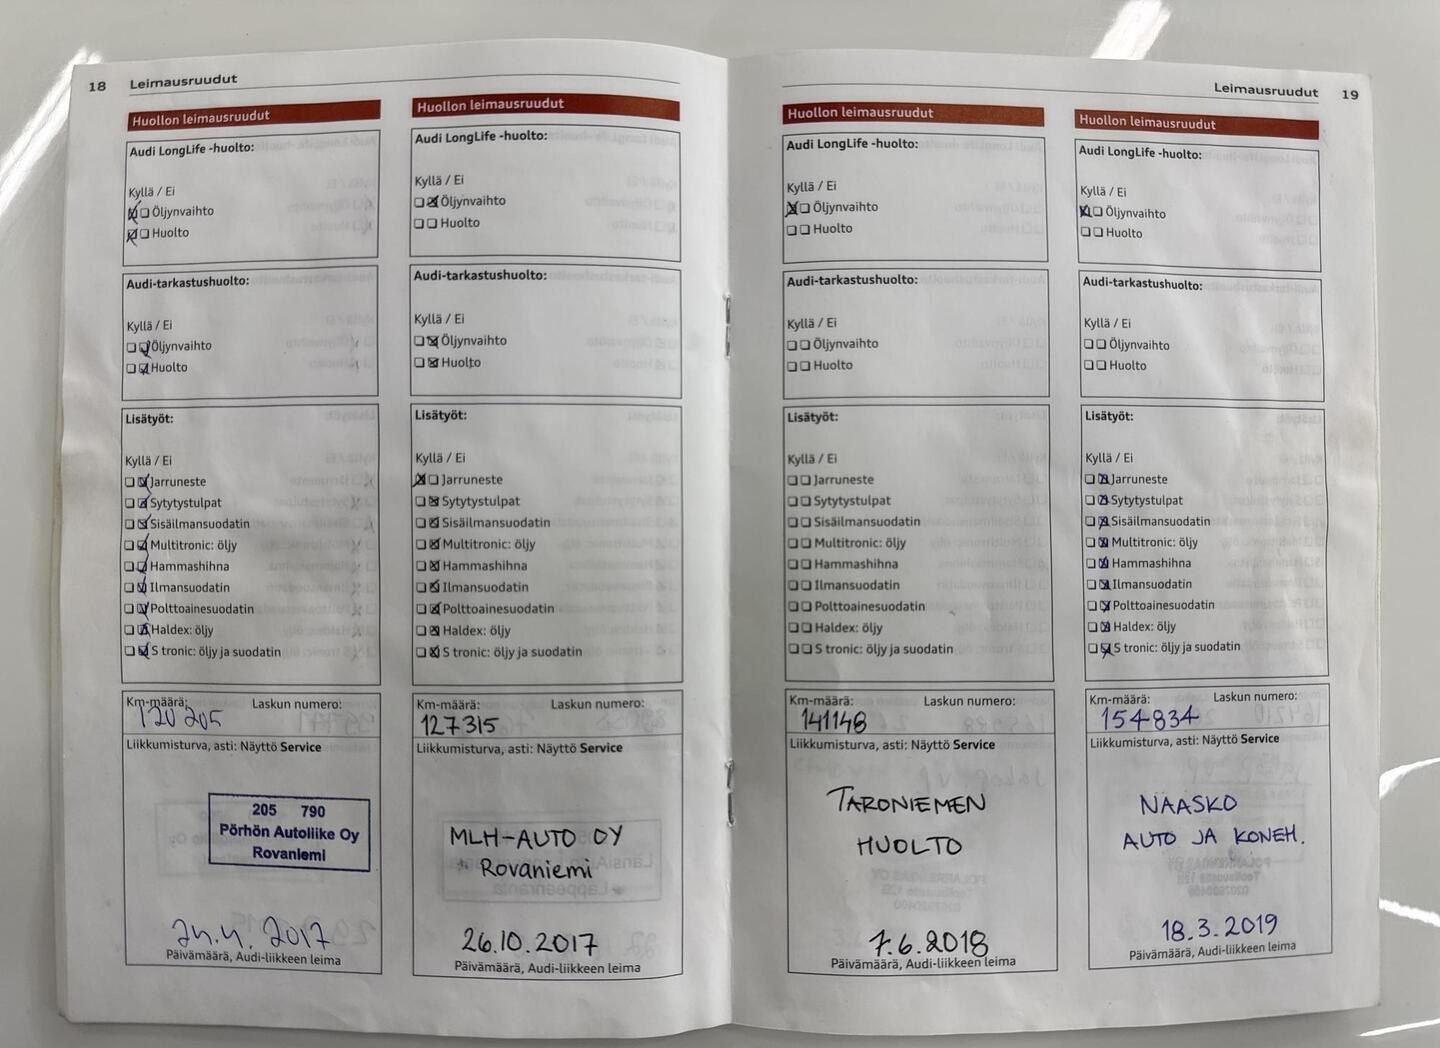 18 Leimausruudut
Huollon leimausruudut
Audi LongLife -huolto:
Kyllä / Ei
Öljynvaihto
Huolto
Audi-tarkastushuolto:
Kyllä / Ei
Öljynvaihto
Huolto
Lisätyöt:
Kyllä / Ei
Jarruneste
Sytytystulpat
Sisäilmansuodatin
Multitronic: öljy
Hammashihna
Ilmansuodatin
Polttoainesuodatin
Haldex: öljy
S tronic: öljy ja suodatin
Km-määrä: Laskun numero:
120 205
Liikkumisturva, asti: Näyttö Service
205 790
Pörhön Autoliike Oy
Rovaniemi
24.4. 2017
Päivämäärä, Audi-liikkeen leima
Huollon leimausruudut
Audi LongLife -huolto:
Kyllä / Ei
Öljynvaihto
Huolto
Audi-tarkastushuolto:
Kyllä / Ei
Öljynvaihto
Huolto
Lisätyöt:
Kyllä / Ei
Jarruneste
Sytytystulpat
Sisäilmansuodatin
Multitronic: öljy
Hammashihna
Ilmansuodatin
Polttoainesuodatin
Haldex: öljy
S tronic: öljy ja suodatin
Km-määrä: Laskun numero:
127315
Liikkumisturva, asti: Näyttö Service
MLH-AUTO OY
Rovaniemi
26.10.2017
Päivämäärä, Audi-liikkeen leima
Leimausruudut 19
Huollon leimausruudut
Audi LongLife -huolto:
Kyllä / Ei
Öljynvaihto
Huolto
Audi-tarkastushuolto:
Kyllä / Ei
Öljynvaihto
Huolto
Lisätyöt:
Kyllä / Ei
Jarruneste
Sytytystulpat
Sisäilmansuodatin
Multitronic: öljy
Hammashihna
Ilmansuodatin
Polttoainesuodatin
Haldex: öljy
S tronic: öljy ja suodatin
Km-määrä: Laskun numero:
141148
Liikkumisturva, asti: Näyttö Service
TARONIEMEN
HUOLTO
7.6.2018
Päivämäärä, Audi-liikkeen leima
Huollon leimausruudut
Audi LongLife -huolto:
Kyllä / Ei
Öljynvaihto
Huolto
Audi-tarkastushuolto:
Kyllä / Ei
Öljynvaihto
Huolto
Lisätyöt:
Kyllä / Ei
Jarruneste
Sytytystulpat
Sisäilmansuodatin
Multitronic: öljy
Hammashihna
Ilmansuodatin
Polttoainesuodatin
Haldex: öljy
S tronic: öljy ja suodatin
Km-määrä: Laskun numero:
154834
Liikkumisturva, asti: Näyttö Service
NAASKO
AUTO JA KONEH.
18.3.2019
Päivämäärä, Audi-liikkeen leima